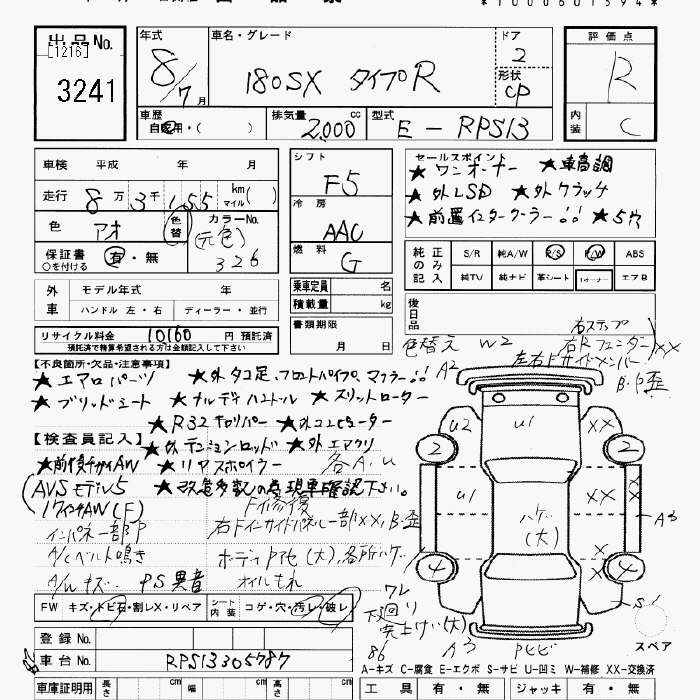 *1000601394*
出品No. 年式 車名・グレード ドア 評価点
[1216] 8/7月 180SX タイプR 2 R
3241 形状 CP
車歴 自家用・( ) 排気量 2,000 cc 型式 E-RPS13 内装 C
車検 平成 年 月 シフト F5
走行 8万3千155 km マイル( )
色 アオ 色替 カラーNo. (元色) 326
保証書 有・無
○を付ける
冷房 AAC
燃料 G
セールスポイント
★ワンオーナー ★車高調
★外LSD ★外クラッチ
★前置インタークーラー!! ★5穴
純正のみ記入 S/R 純A/W P/S P/W ABS
純TV 純ナビ 革シート ワンオーナー エアB
外車 モデル年式 年
ハンドル 左・右 ディーラー・並行
乗車定員 名
積載量 kg
書類期限 月 日
後日品
リサイクル料金 10160 円 預託済
預託済で精算希望される方は金額記入して下さい
色替え W2
右ステップ
右Fフェンダー
左右Fサイドメンバー
XX
B・P歪
【不良箇所・欠品・注意事項】
★エアロパーツ ★外タコ足、フロントパイプ、マフラー!!
★ブリッドシート ★ナルディハンドル ★スリットローター
★R32キャリパー ★外コンピューター
【検査員記入】 ★外テンションロッド ★外エアクリ
★リヤスポイラー 各A.U
(AVSモデル5 ★改造多数の為現車確認下さい。
17インチAW(F) F廻修復
インパネ一部P 右Fインサイドパネル一部XX,B・歪
A/Cベルト鳴き ボディPアセ(大),各所ハゲ
A/Wキズ PS異音 オイルもれ
A2 U2 U1 XX
2 2
U1 ハゲ(大) XX XX A3
X X
4 4
S1
スペア
ワレ
下廻り
突上げ(大)
A3 Pヒビ
FW キズ・トビ石・割レX・リペア シート内装 コゲ・穴・汚レ・破レ
登録No.
車台No. RPS13305787
A-キズ C-腐食 E-エクボ S-サビ U-凹ミ W-補修 XX-交換済
車庫証明用 長さ cm 幅 cm 高さ cm 工具 有・無 ジャッキ 有・無